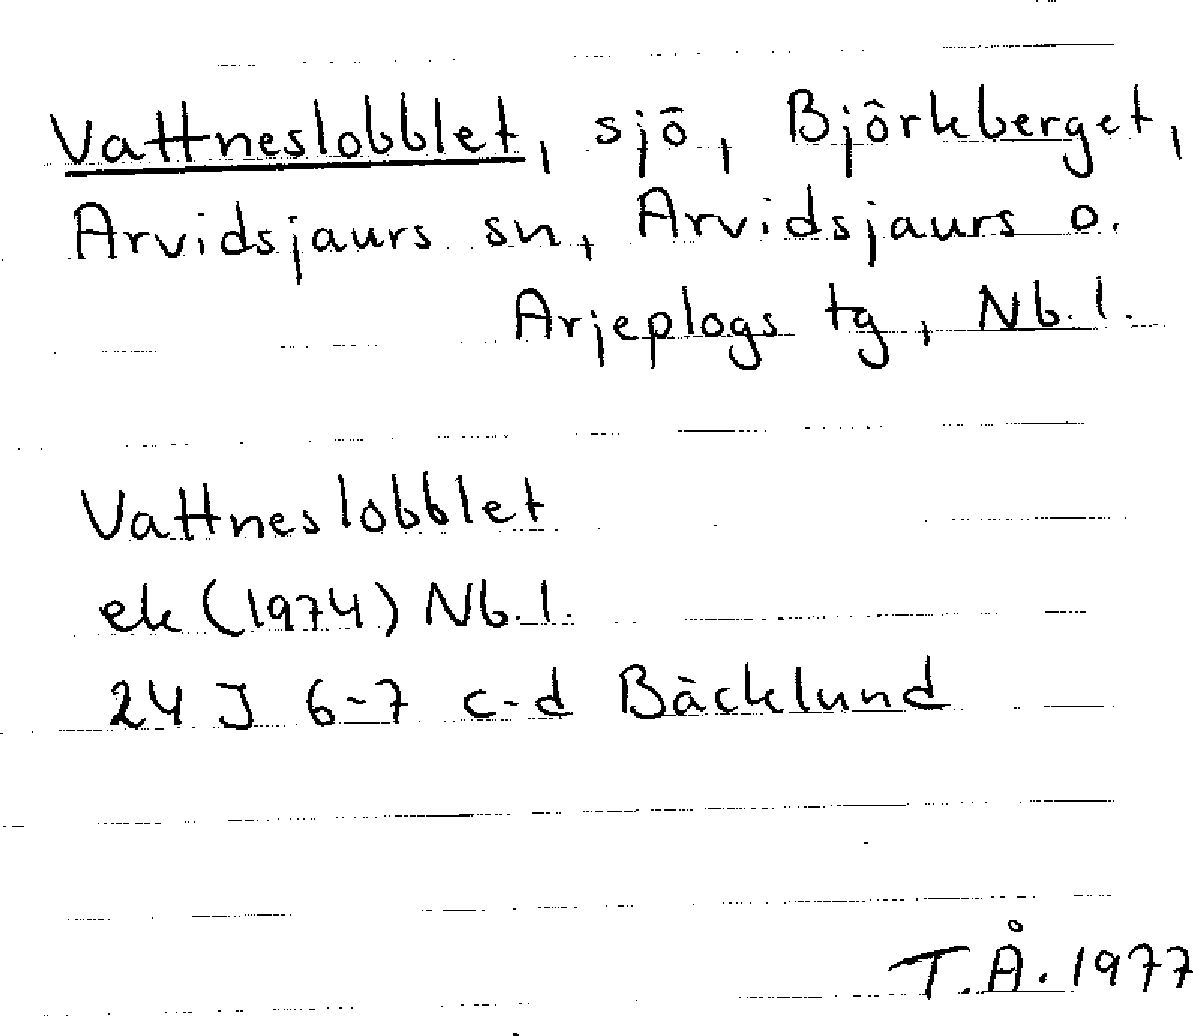 Vattneslobblet, sjö, Björkberget,
Arvidsjaurs sn, Arvidsjaurs o.
Arjeplogs tg, Nb.l.
Vattneslobblet
ek (1974) Nb.l.
24 J 6-7 c-d Bäcklund
T.Å. 1977